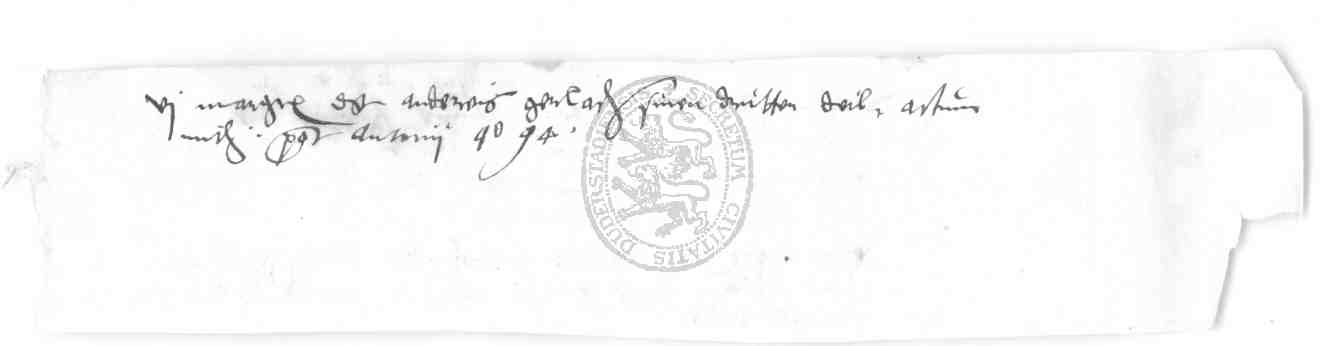 vj margk andrewis gerlach sinen dritten deil, actum
post antonij 94
SECRETUM CIVITATIS DUDERSTAD